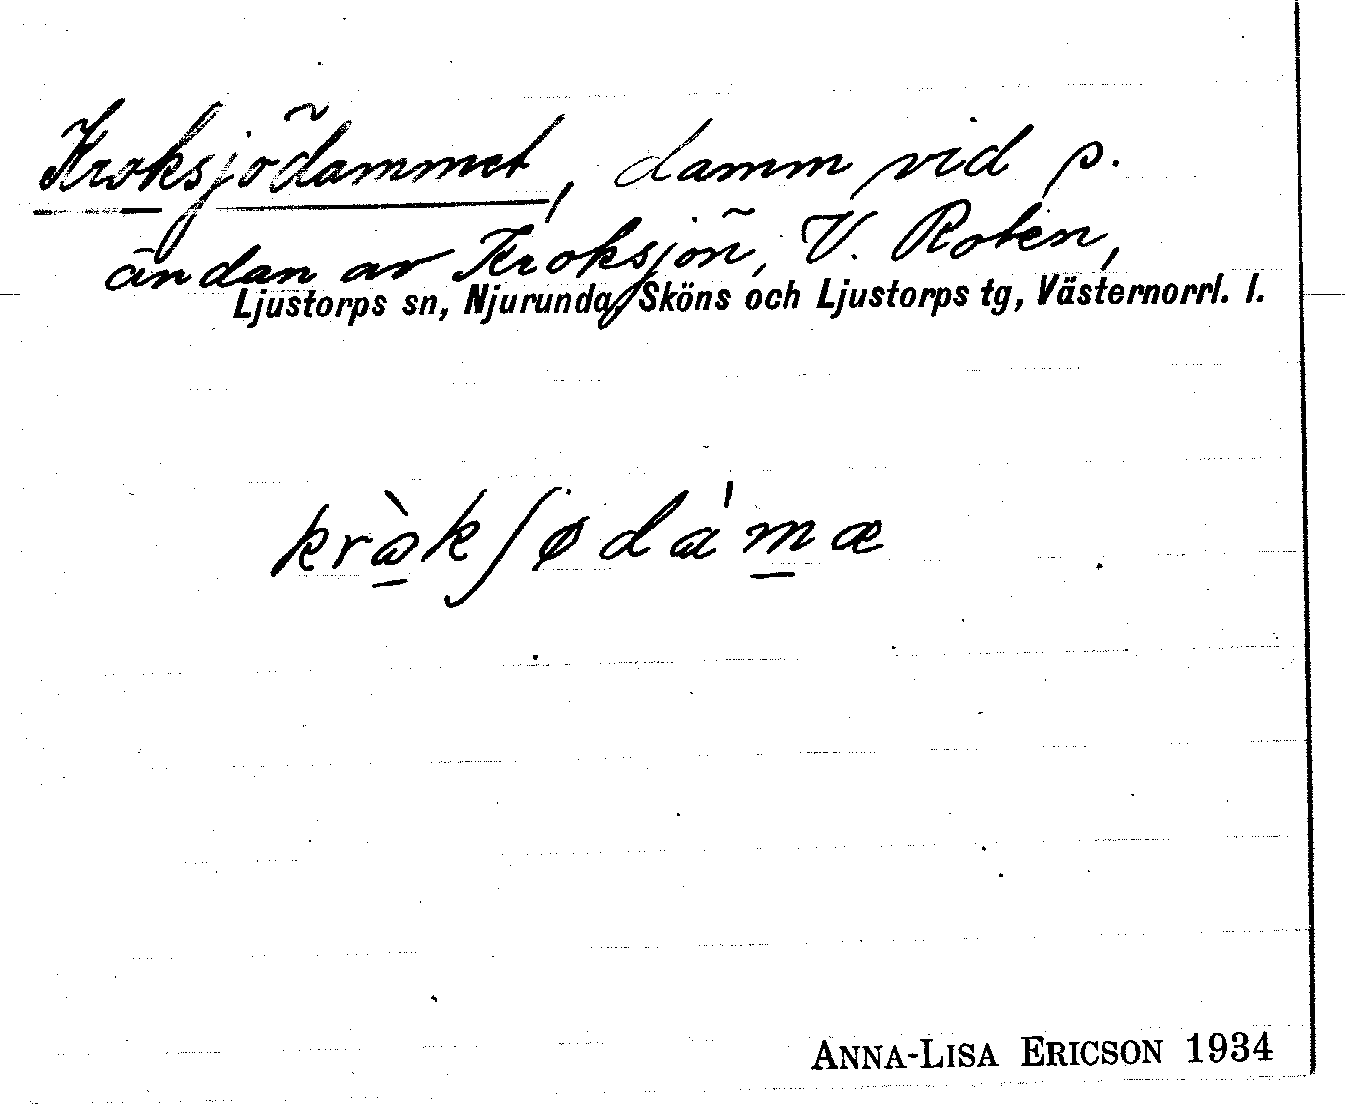 Kroksjödammet, damm vid s.
ändan av Kroksjön, V. Roten,
Ljustorps sn, Njurunda, Sköns och Ljustorps tg, Västernorrl. l.
krɷ̀kʃødàmæ
ANNA-LISA ERICSON 1934